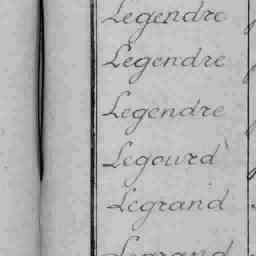 Legendre
Legendre
Legendre
Legourd
Legrand
Legrand